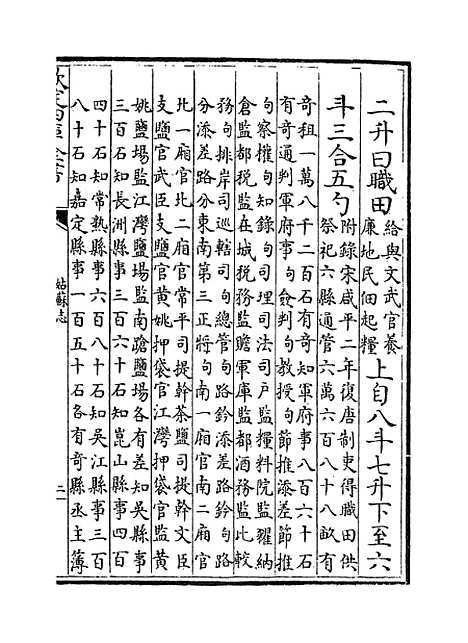 二升曰職田給與文武官養廉地民佃起糧上自八斗七升下至六
斗三合五勺附錄宋咸平二年復唐制吏得職田供祭祀六縣通管六萬六百八十八畝有
奇租一萬八千二百石有奇知軍府事八百六十石有奇通判軍府事句僉判句教授句節推添差節推
句察權句知錄句司理司法司户監糧料院監糴納倉監都税監在城税務監贍軍庫監都酒務監比較
務句排岸司巡轄司句總管句路鈐添差路鈐句路分添差路分東南第三正將句南一廂官南二廂官
北一廂官北二廂官常平司提幹茶鹽司提幹文臣支鹽官武臣支鹽官黄姚押袋官江灣押袋官監黄
姚鹽場監江灣鹽場監南蹌鹽場各有差知吳縣事三百石知長洲縣事三百六十石知崑山縣事四百
四十石知常熟縣事六百八十石知吳江縣事三百八十石知嘉定縣事一百五十石各有奇縣丞主薄
欽定四庫全書
姑蘇志
二